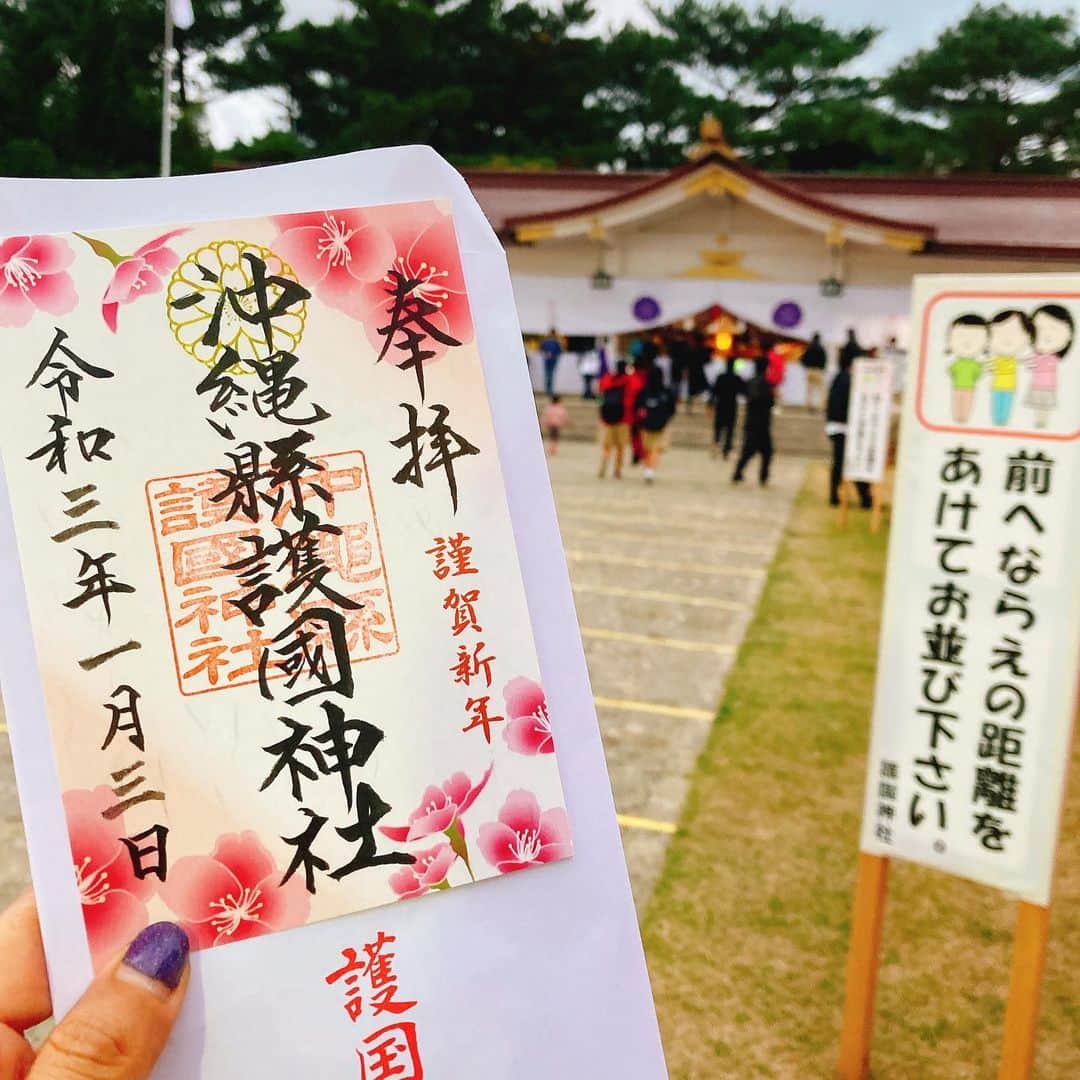 奉拝
謹賀新年
沖縄縣護國神社
沖縄縣
護國神社
令和三年一月三日
護国
前へならえの距離を
あけてお並び下さい。
護国神社